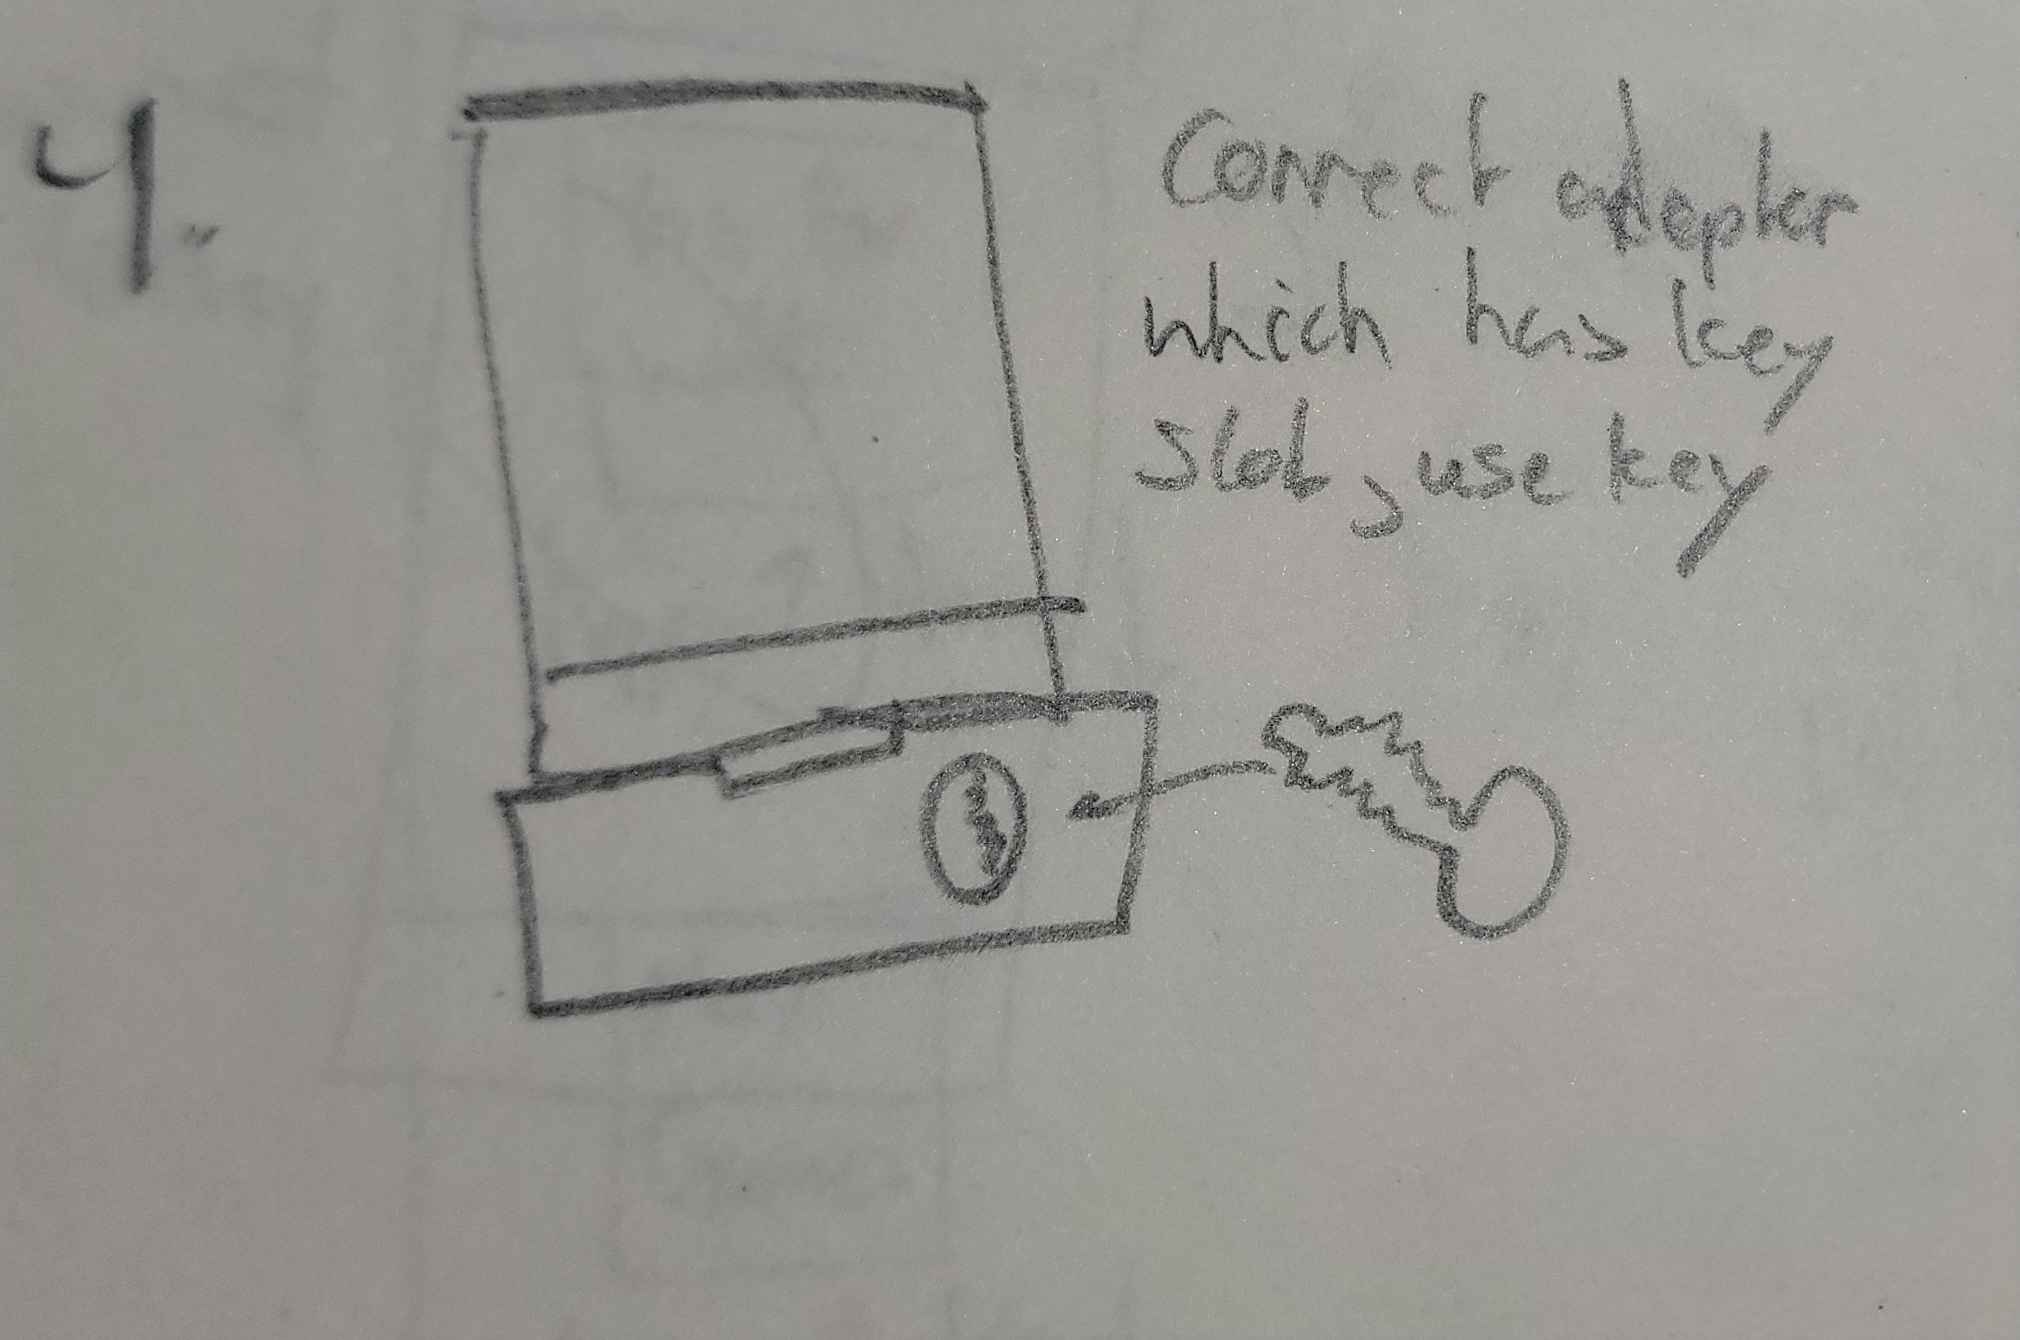 4.
Correct adapter
which has key
slot, use key